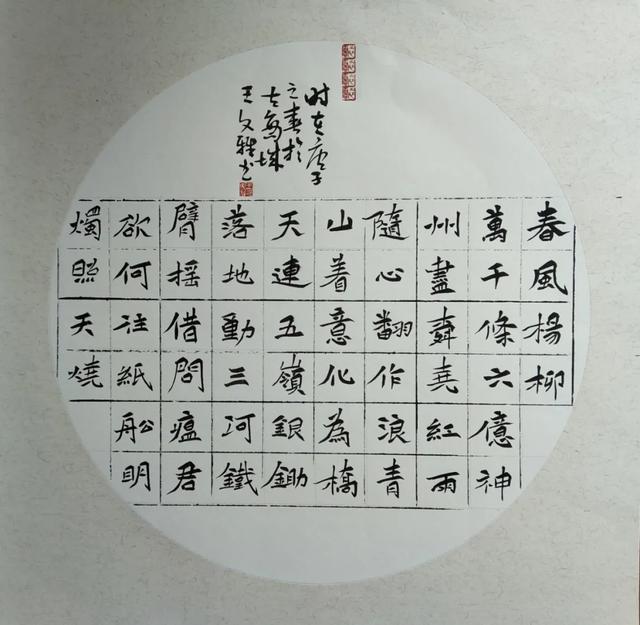 时在庚子
之春於
古城
王文雅书
春風楊柳
萬千條六億神
州盡舜堯紅雨
隨心翻作浪青
山着意化為橋
天連五嶺銀鋤
落地動三河鐵
臂揺借問瘟君
欲何往紙舩明
燭照天燒